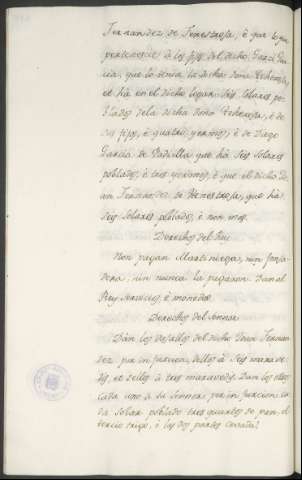 Fernandez de Fenestrosa, è que lo que
pertenesce à los fijos del dicho Garci Gar-
cia, que lo tenia la dicha doña Techeresa,
et hà en el dicho logar seis Solares po-
blados dela dicha doña Techeresa, è de
sus fijos, è quatro yermos; è de Diego
Garcia de Padiella que hà seis Solares
poblados, è tres yermos, è que el dicho Jo-
an Fernandez de Henestrosa, que hà
seis Solares poblados, è non mas.
Derechos del Rey
Non pagan Martiniega, nin fonsa-
dera, nin nunca la pagaron. Dan al
Rey servicios, è monedas.
Derechos del Sennor
Dan los vasallos del dicho Joan Fernan-
dez por infurcion, dellos à seis marave-
dis, et dellos à tres maravedis. Dan los otros
cada uno à su Sennor por infurcion ca-
da solar poblado tres quartos de pan, el
tercio trigo, è las dos partes cevada.